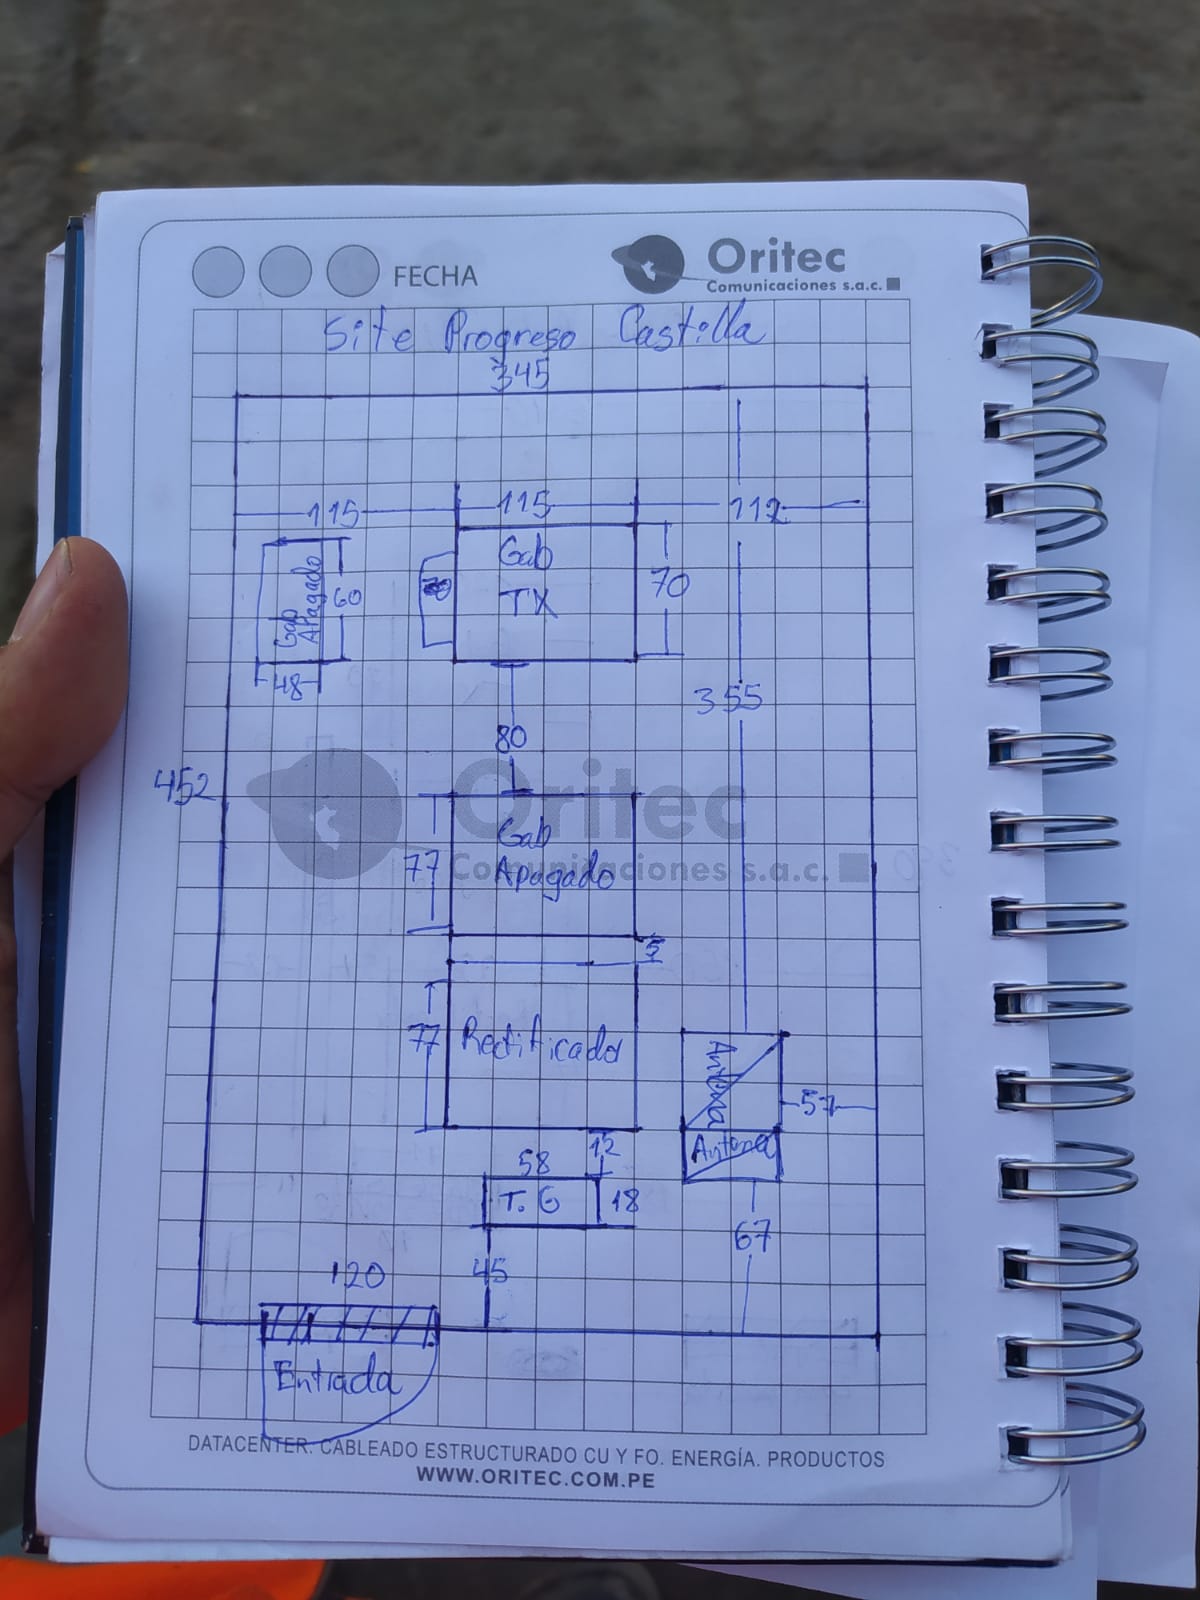 FECHA
Oritec
Comunicaciones s.a.c.
Site Progreso Castilla
345
115
115
112
Gab
TX
Gab
Apagado
60
70
48
355
80
452
Oritec
Comunicaciones s.a.c.
Gab
Apagado
77
5
77
Rectificador
Antena
57
12
Antena
58
T. G
18
67
45
120
Entrada
DATACENTER. CABLEADO ESTRUCTURADO CU Y FO. ENERGÍA. PRODUCTOS
WWW.ORITEC.COM.PE